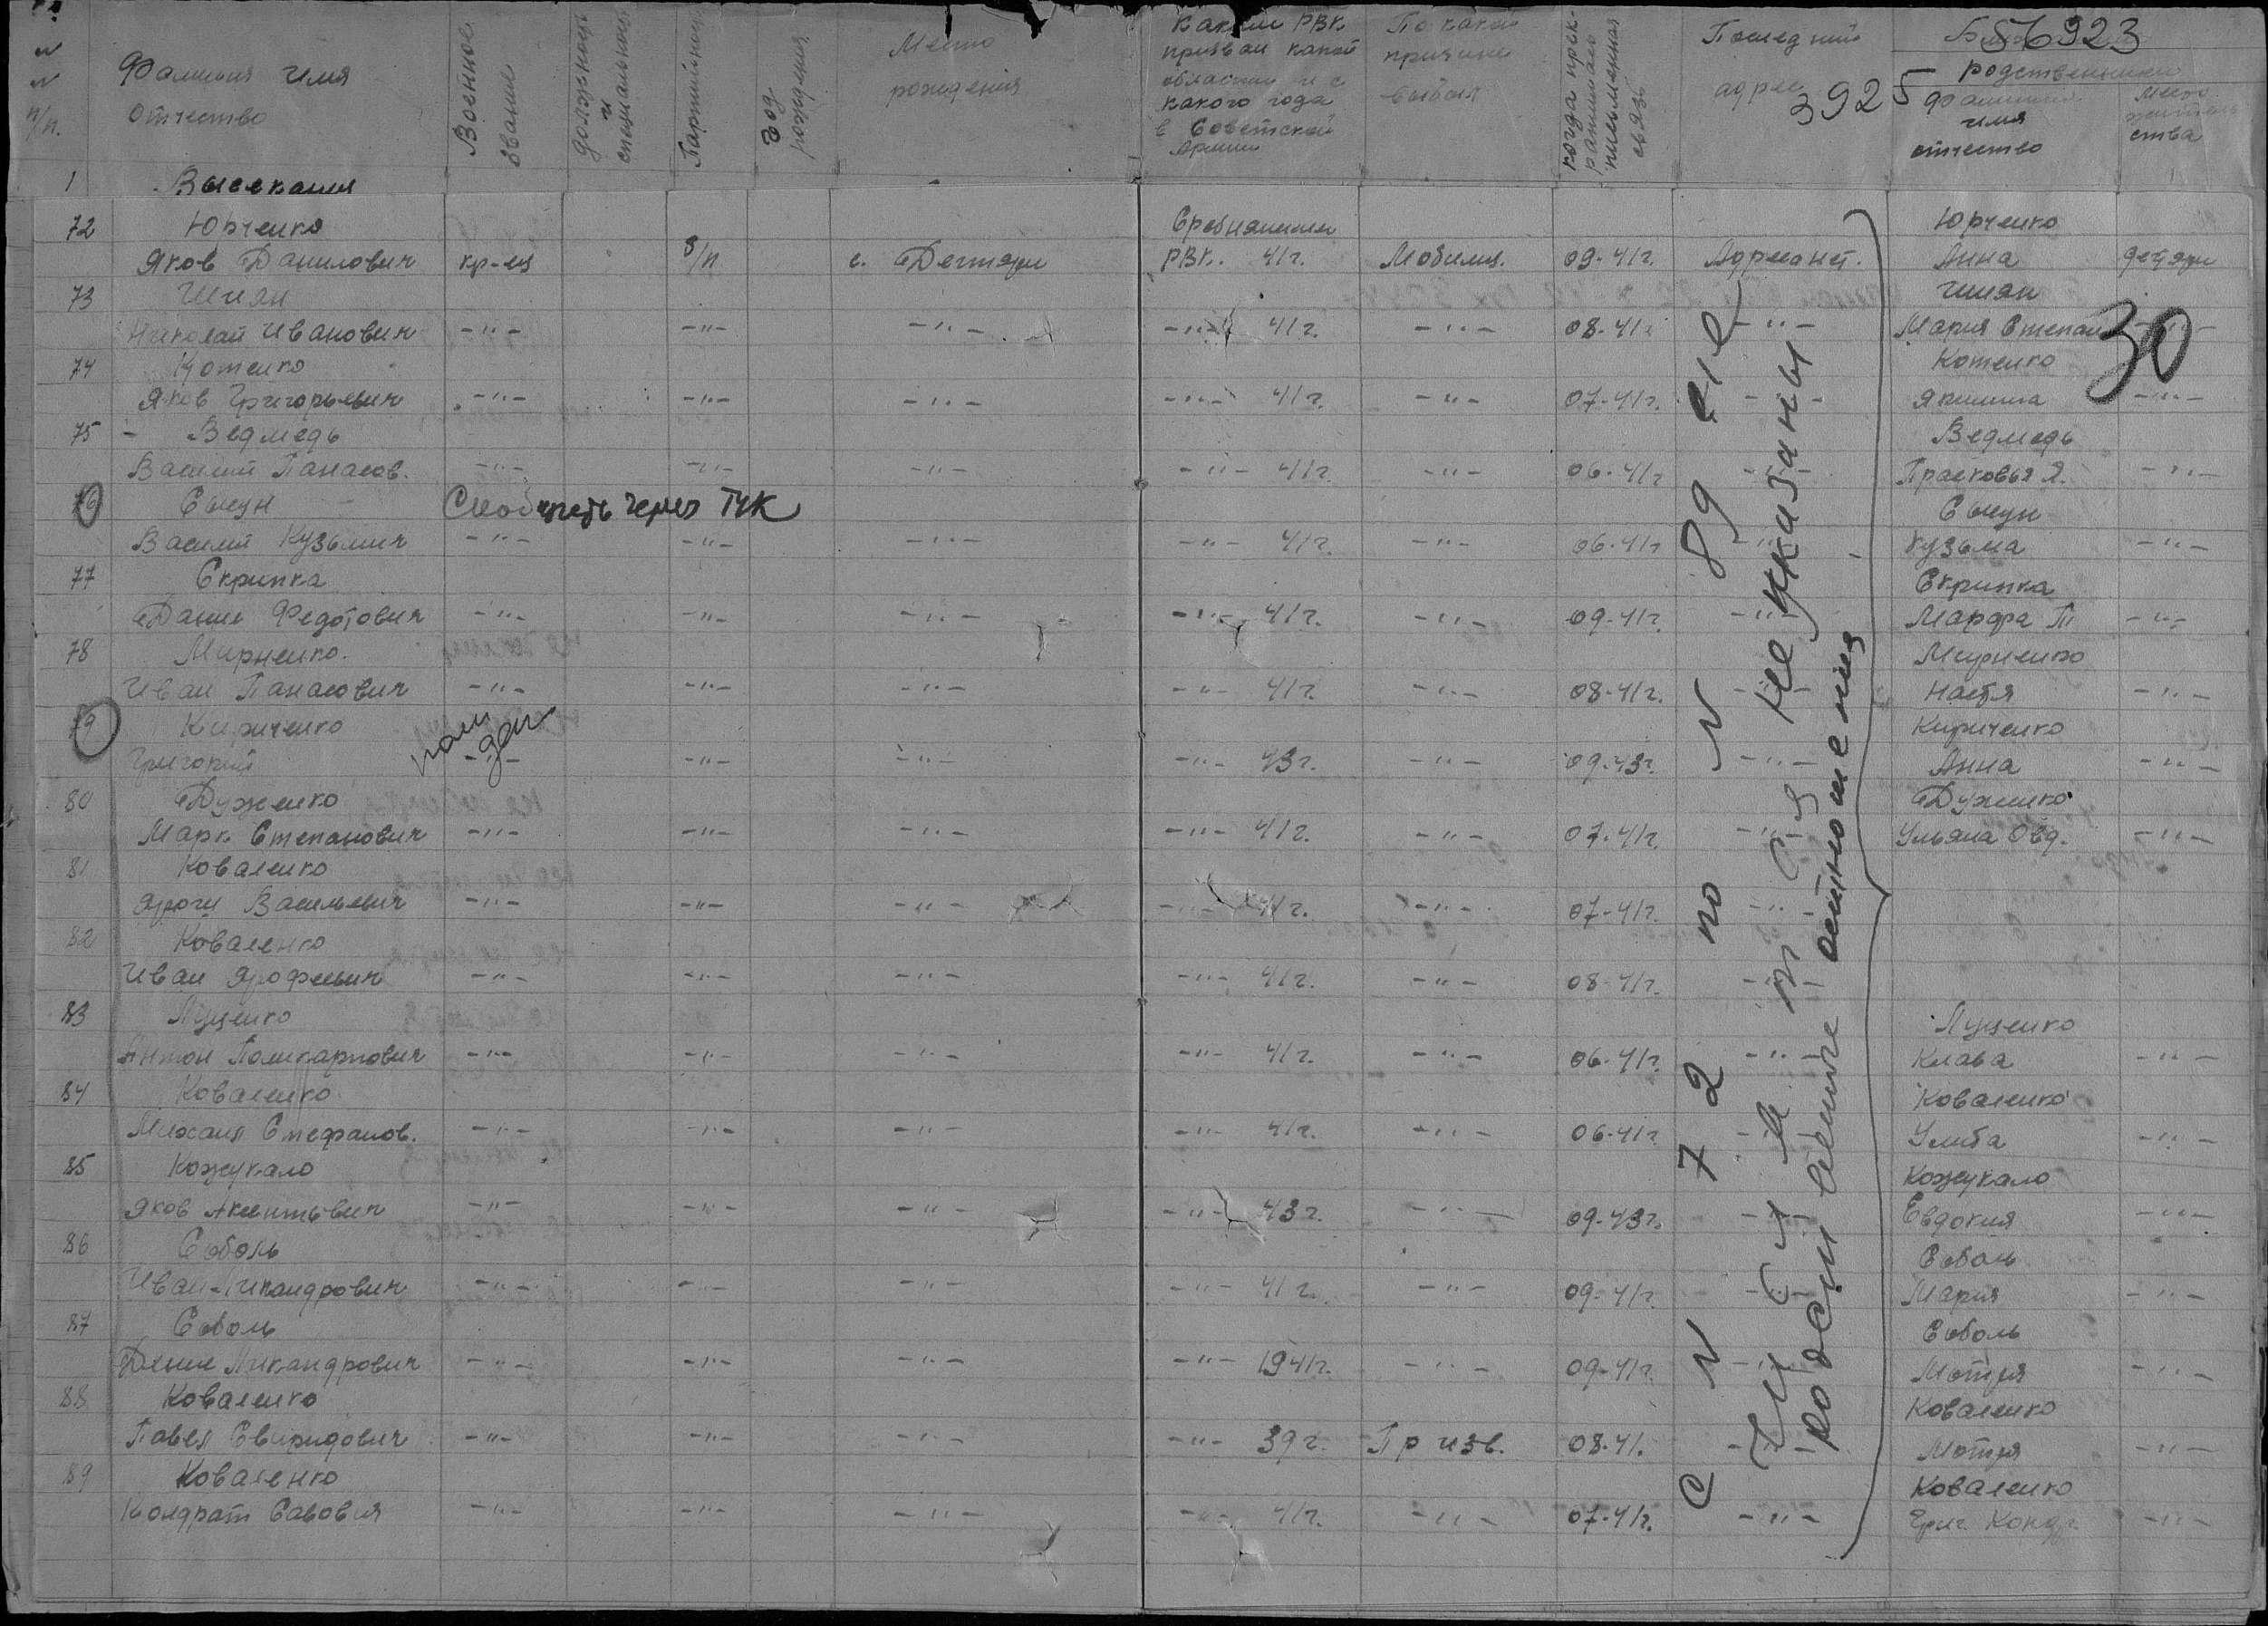 56923
3925
п/п.
Фамилия имя
Отчество
Военное звание
должность и специальность
Партийность
Год рождения
Место
рождения
Каким РВК
призван какой
области и с
какого года
в Советской
Армии
По какой
причине
выбыл
когда прек-
ратилась
письменная
связь
Последний
адрес
родственники
Фамилия
имя
отчество
место
житель
ства
1
72 Юрченко Юрченко
Яков Данилович кр-ец б/п с. Дегтяри РВК. 41г. Мобилиз. 09-41г. Адреса нет. Анна
73 Шиян Шиян
Николай Иванович -"- -"- -"- -"- 41г. -"- 08-41г. -"- Мария Степан -"-
30
74 Котенко Котенко
Яков Григорьевич -"- -"- -"- -"- 41г. -"- 07-41г. -"- -"-
75 - Ведмедь Ведмедь
Василий Панасов. -"- -"- -"- -"- 41г. -"- 06-41г. -"- Прасковья Я. -"-
76 Сысун Сообщить через ГУК Сысун
Василий Кузьмич -"- -"- -"- -"- 41г. -"- 06-41г. -"- Кузьма -"-
77 Скрипка Скрипка
Данил Федотович -"- -"- -"- -"- 41г. -"- 09-41г. -"- Марфа Т -"-
78 Мирненко. Мирненко
Иван Панасович -"- -"- -"- -"- 41г. -"- 08-41г. -"- Настя -"-
79 Кириченко Кириченко
Григорий -"- -"- -"- -"- 43г. -"- 09-43г. -"- Анна -"-
80 Дуженко Дуженко
Марк Степанович -"- -"- -"- -"- 41г. -"- 07-41г. -"- Ульяна Овд. -"-
81 Коваленко
Васильевич -"- -"- -"- -"- 41г. -"- 07-41г. -"-
82 Коваленко
Иван Ярофеевич -"- -"- -"- -"- 41г. -"- 08-41г. -"-
83 Луценко Луценко
Антон Поликарпович -"- -"- -"- -"- 41г. -"- 06-41г. -"- Клава -"-
84 Коваленко Коваленко
Михаил Стефанов. -"- -"- -"- -"- 41г. -"- 06-41г. -"- -"-
85 Кожукало Кожукало
Яков Акентьевич -"- -"- -"- -"- 43г. -"- 09-43г. -"- Евдокия -"-
86 Соболь Соболь
Иван Никандрович -"- -"- -"- -"- 41г. -"- 09-41г. -"- Мария -"-
87 Соболь Соболь
Денис Никандрович -"- -"- -"- -"- 1941г. -"- 09-41г. -"- Мотря -"-
88 Коваленко Коваленко
Павел Свиридович -"- -"- -"- -"- 39г. Призв. 08-41. -"- Мотря -"-
89 Коваленко Коваленко
Кондрат Савович -"- -"- -"- -"- 41г. -"- 07-41г. -"- Григ. Кондр. -"-
с N 72 по N 89 не
не указаны
родственные отношения